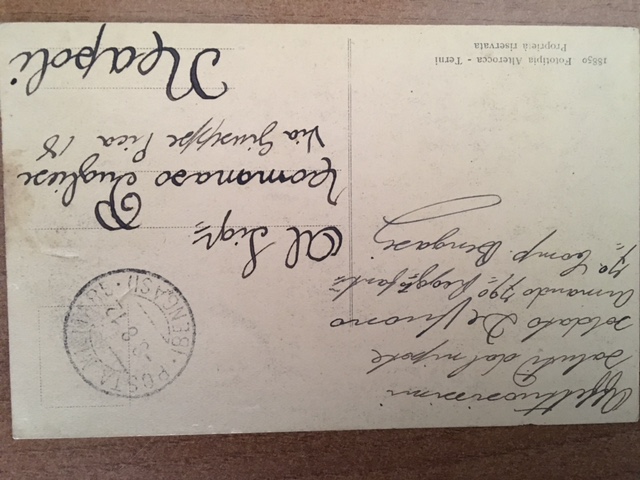 Affettuosissimi
saluti dal nipote
soldato De Vuono
Armando 79º Reggto fantia
7ª Comp. Bengasi
POSTA MILITARE
(BENGASI)
8.12
Al Sigr.
Tommaso Pugliese
Via Giuseppe Pica 18
Napoli
18850 Fototipia Alterocca - Terni
Proprietà riservata